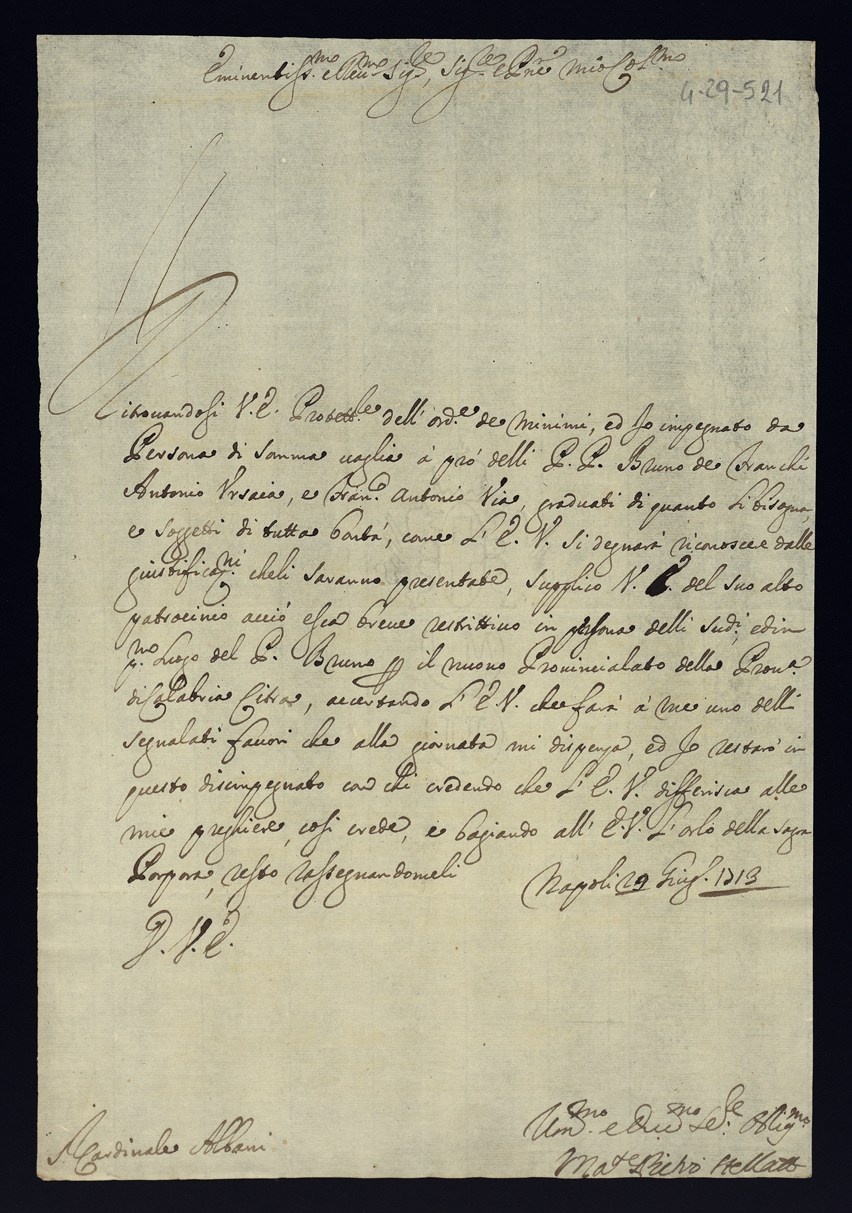 Eminentiss.mo e Reu.mo Sig.re, Sig.re e Pne mio Col.mo
4-29-521
Ritrouandosi V. E. Protett.re dell' ord.e de Minimi, ed Io impegnato da
Persona di somma uaglia à prò delli P. P. Bruno de Franchi
Antonio Vrsaia, e Fran.o Antonio Via, graduati di quanto li bisogna,
e soggetti di tutta bontà, come L' E. V. si degnarà riconoscere dalle
giustifica.ni cheli saranno presentate, supplico V. E. del suo alto
patrocinio acciò esca breue restrittiuo in persona delli sud.i, ed in
p.mo luogo del P. Bruno per il nuouo Prouincialato della Prou.a
di Calabria Citra, accertando L' E. V. che farà à me uno delli
segnalati fauori che alla giornata mi dispenza, ed Io restarò in
questo disimpegnato con chi credendo che L' E. V. differisca alle
mie preghiere, così crede, e bagiando all' E. V. L'orlo della sagra
Porpora, resto rassegnandomeli
Napoli 29 Giug. 1713
D. V. E.
Um.mo e Diu.mo Se.re Oblig.mo
S. Cardinale Albani